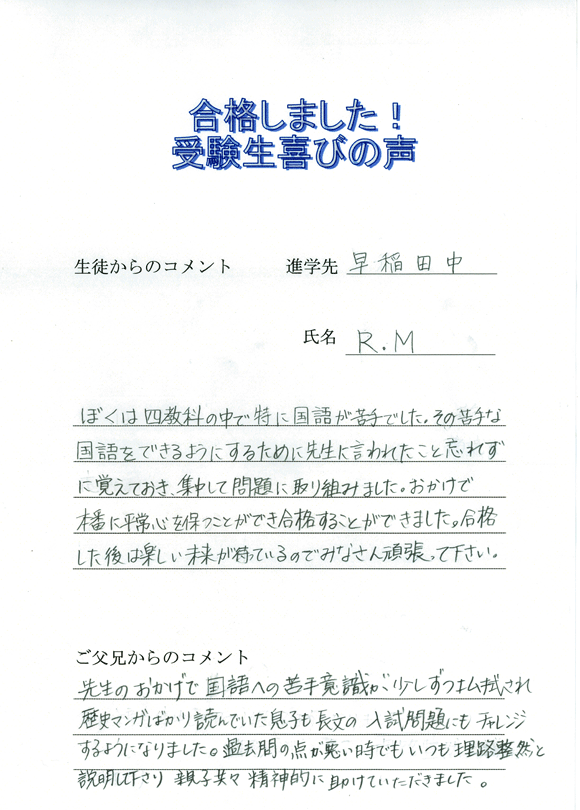 合格しました！
受験生喜びの声
生徒からのコメント 進学先 早稲田中
氏名 R.M
ぼくは四教科の中で特に国語が苦手でした。その苦手な
国語をできるようにするために先生に言われたこと忘れず
に覚えておき、集中して問題に取り組みました。おかげで
本番に平常心を保つことができ合格することができました。合格
した後は楽しい未来が待っているのでみなさん頑張って下さい。
ご父兄からのコメント
先生のおかげで国語への苦手意識が、少しずつ払拭され
歴史マンガばかり読んでいた息子も長文の入試問題にもチャレンジ
するようになりました。過去問の点が悪い時でもいつも理路整然と
説明して下さり親子共々精神的に助けていただきました。